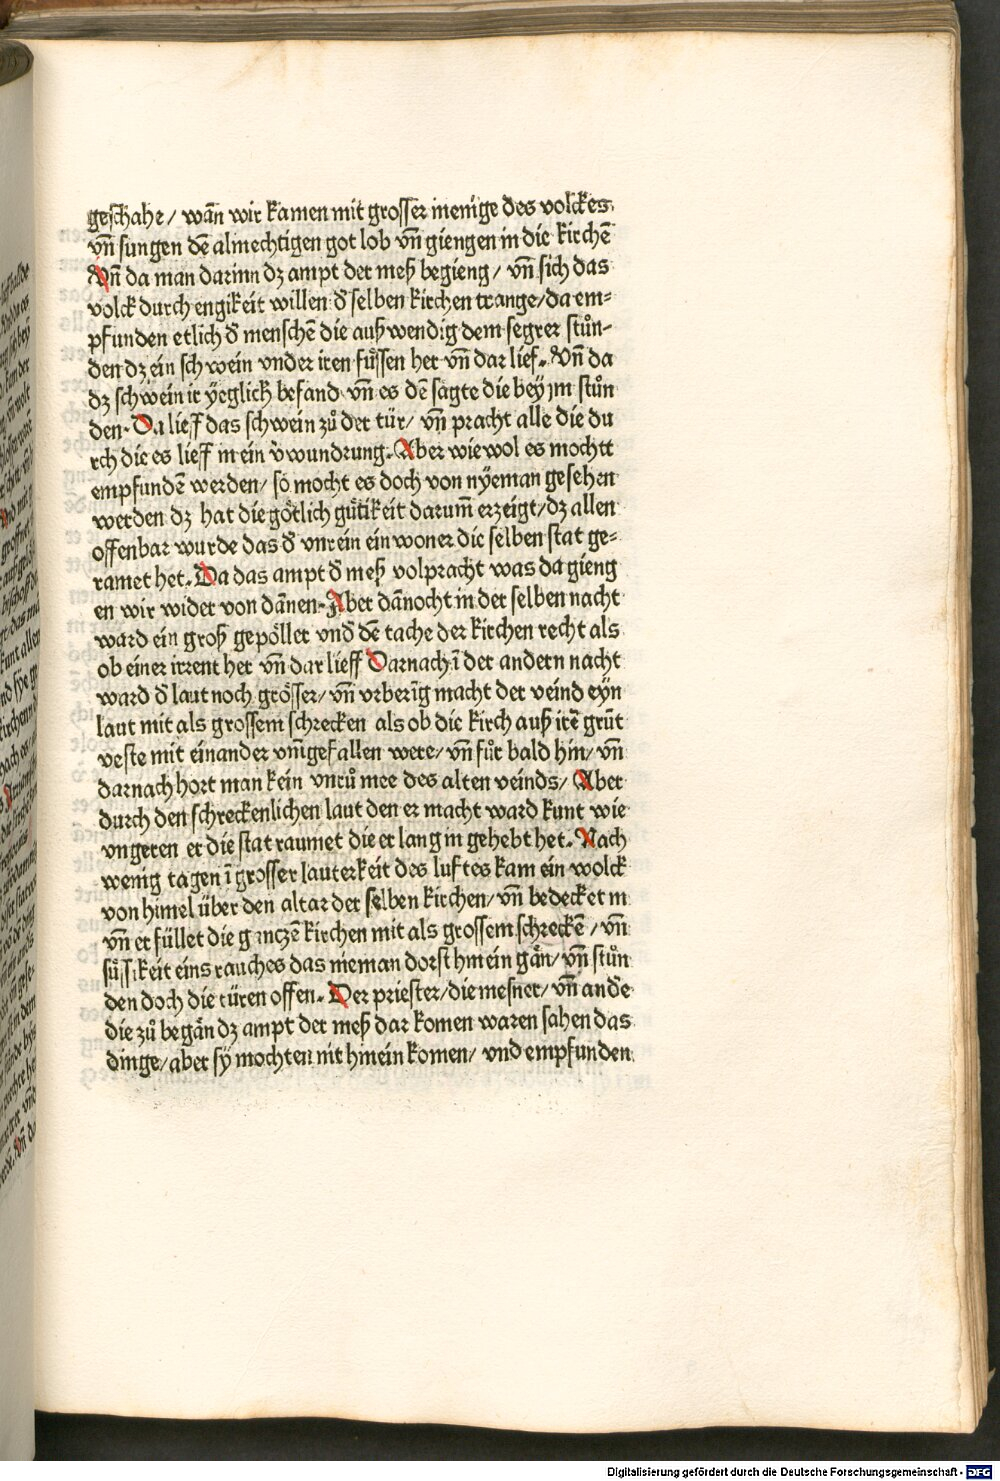 geschahe/ wañ wir kamen mit grosser menige des volckes
vñ sungen dē almechtigen got lob vñ giengen in die kirchē
Vñ da man darinn dz ampt der meß begieng/ vñ sich das
volck durch engikeit willen d̄ selben kirchen trange/da em⸗
pfunden etlich d̄ menschē die außwendig dem segrer stůn⸗
den dz ein schwein vnder iren fůssen her vñ dar lief. Vñ da
dz schwein ir yeglich befand vñ es dē sagte die bey jm stůn
den. Da lieff das schwein zů der tür/ vñ pracht alle die du
rch die es lieff in ein v̄wundrung. Aber wiewol es mochtt
empfundē werden/ so mocht es doch von nyeman gesehen
werden dz hat die gȯtlich gu̇tikeit darum̄ erzeigt/dz allen
offenbar wurde das d̄ vnrein einwoner die selben stat ge⸗
ramet het. Da das ampt d̄ meß volpracht was da gieng
en wir wider von dānen. Aber dānocht in der selben nacht
ward ein groß gepöller vnd̄ dē tache der kirchen recht als
ob einer irrent her vñ dar lieff Darnach ī der andern nacht
ward d̄ laut noch grȯsser/ vñ vrberīg macht der veind eyn
laut mit als grossem schrecken als ob die kirch auß irē grūt
veste mit einander vm̄gefallen were/ vñ fůr bald hin/ vñ
darnach hort man kein vnrů mee des alten veinds/ Aber
durch den schreckenlichen laut den er macht ward kunt wie
vngeren er die stat raumet die er lang in gehebt het. Nach
wenig tagen ī grosser lauterkeit des luftes kam ein wolck
von himel über den altar der selben kirchen/ vñ bedecket in
vñ erfüllet die ganczē kirchen mit als grossem schreckē/ vñ
sůssikeit eins rauches das nieman dorst hinein gȧn/ vñ stůn
den doch die türen offen. Der priester/die mesner/ vñ ande
die zů begȧn dz ampt der meß dar komen waren sahen das
dinge/aber sy mochten nit hinein komen/ vnd empfunden
Digitalisierung gefördert durch die Deutsche Forschungsgemeinschaft - DFG